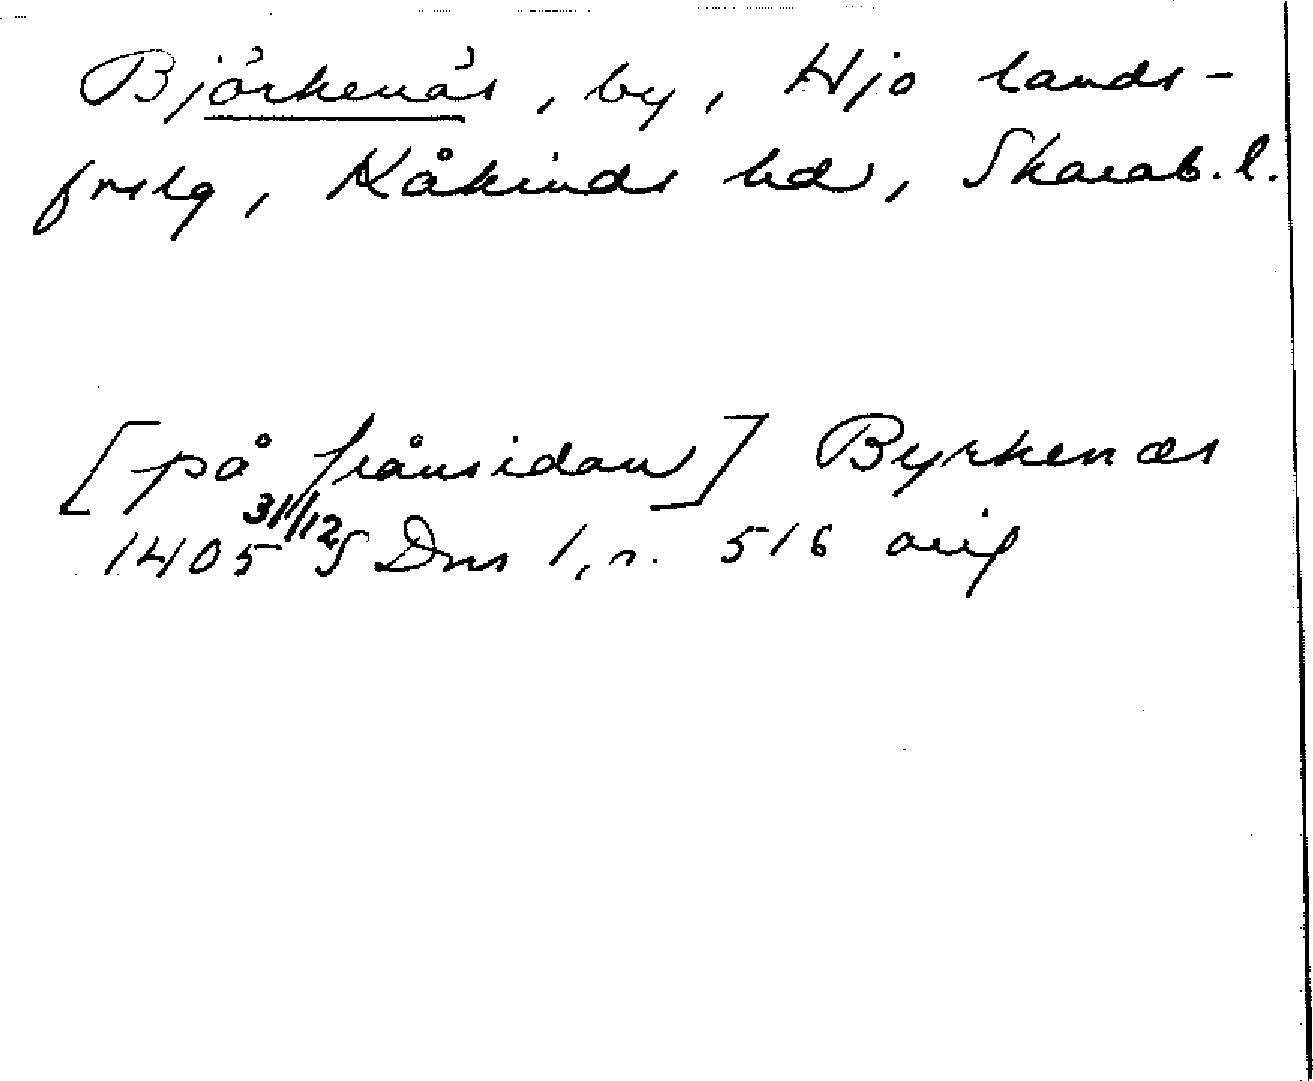 Björkenäs, by, Hjo lands-
frslg, Kåkinds hd, Skarab. l.
[på frånsidan] Byrkenæs
1405 31/12 S Dns 1, n. 516 orig